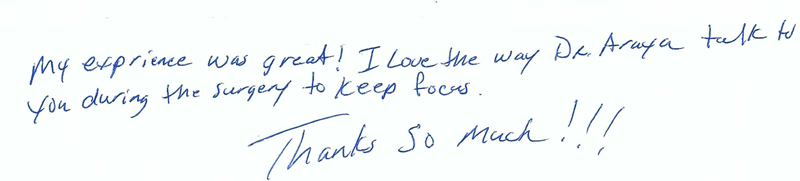 My exprience was great! I Love the way Dr. Araya talk to
you during the surgery to keep focus.
Thanks so much!!!